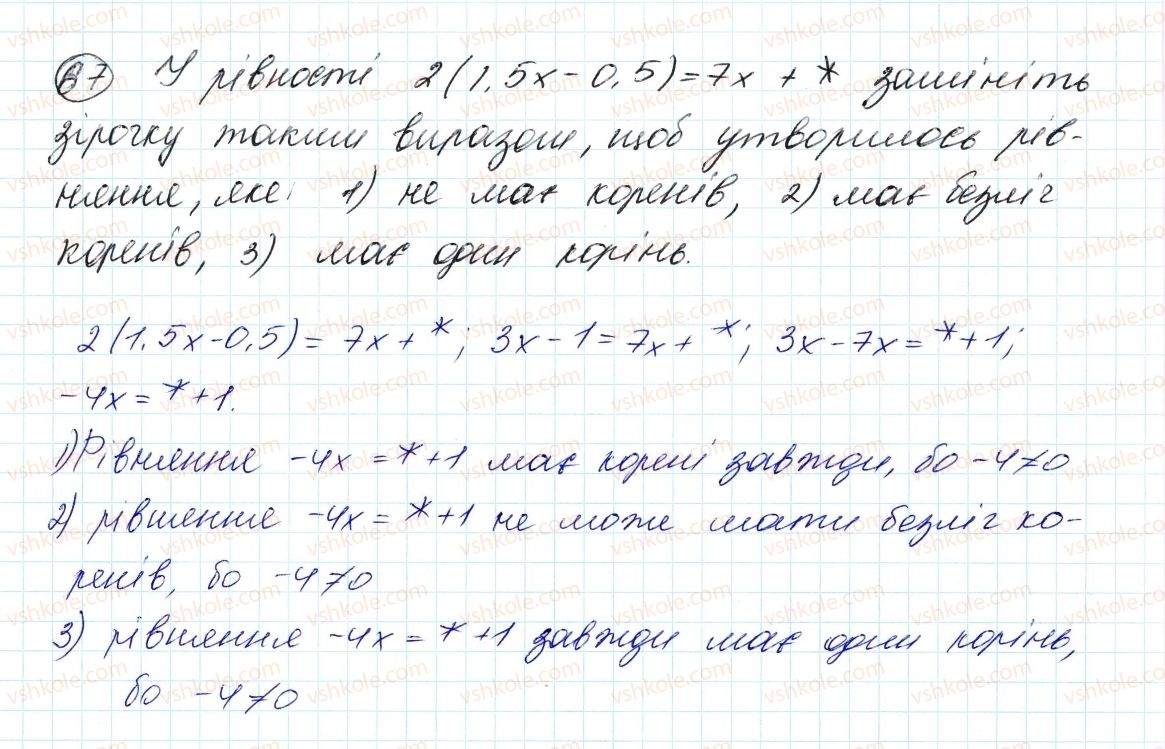 67 У рівності 2(1,5x-0,5)=7x+* замініть
зірочку таким виразом, щоб утворилось рів-
няння, яке: 1) не має коренів, 2) має безліч
коренів, 3) має один корінь.
2(1,5x-0,5)=7x+*; 3x-1=7x+*; 3x-7x=*+1;
-4x=*+1.
1) Рівняння -4x=*+1 має корені завжди, бо -4≠0
2) рівняння -4x=*+1 не може мати безліч ко-
ренів, бо -4≠0
3) рівняння -4x=*+1 завжди має один корінь,
бо -4≠0
vshkole.com